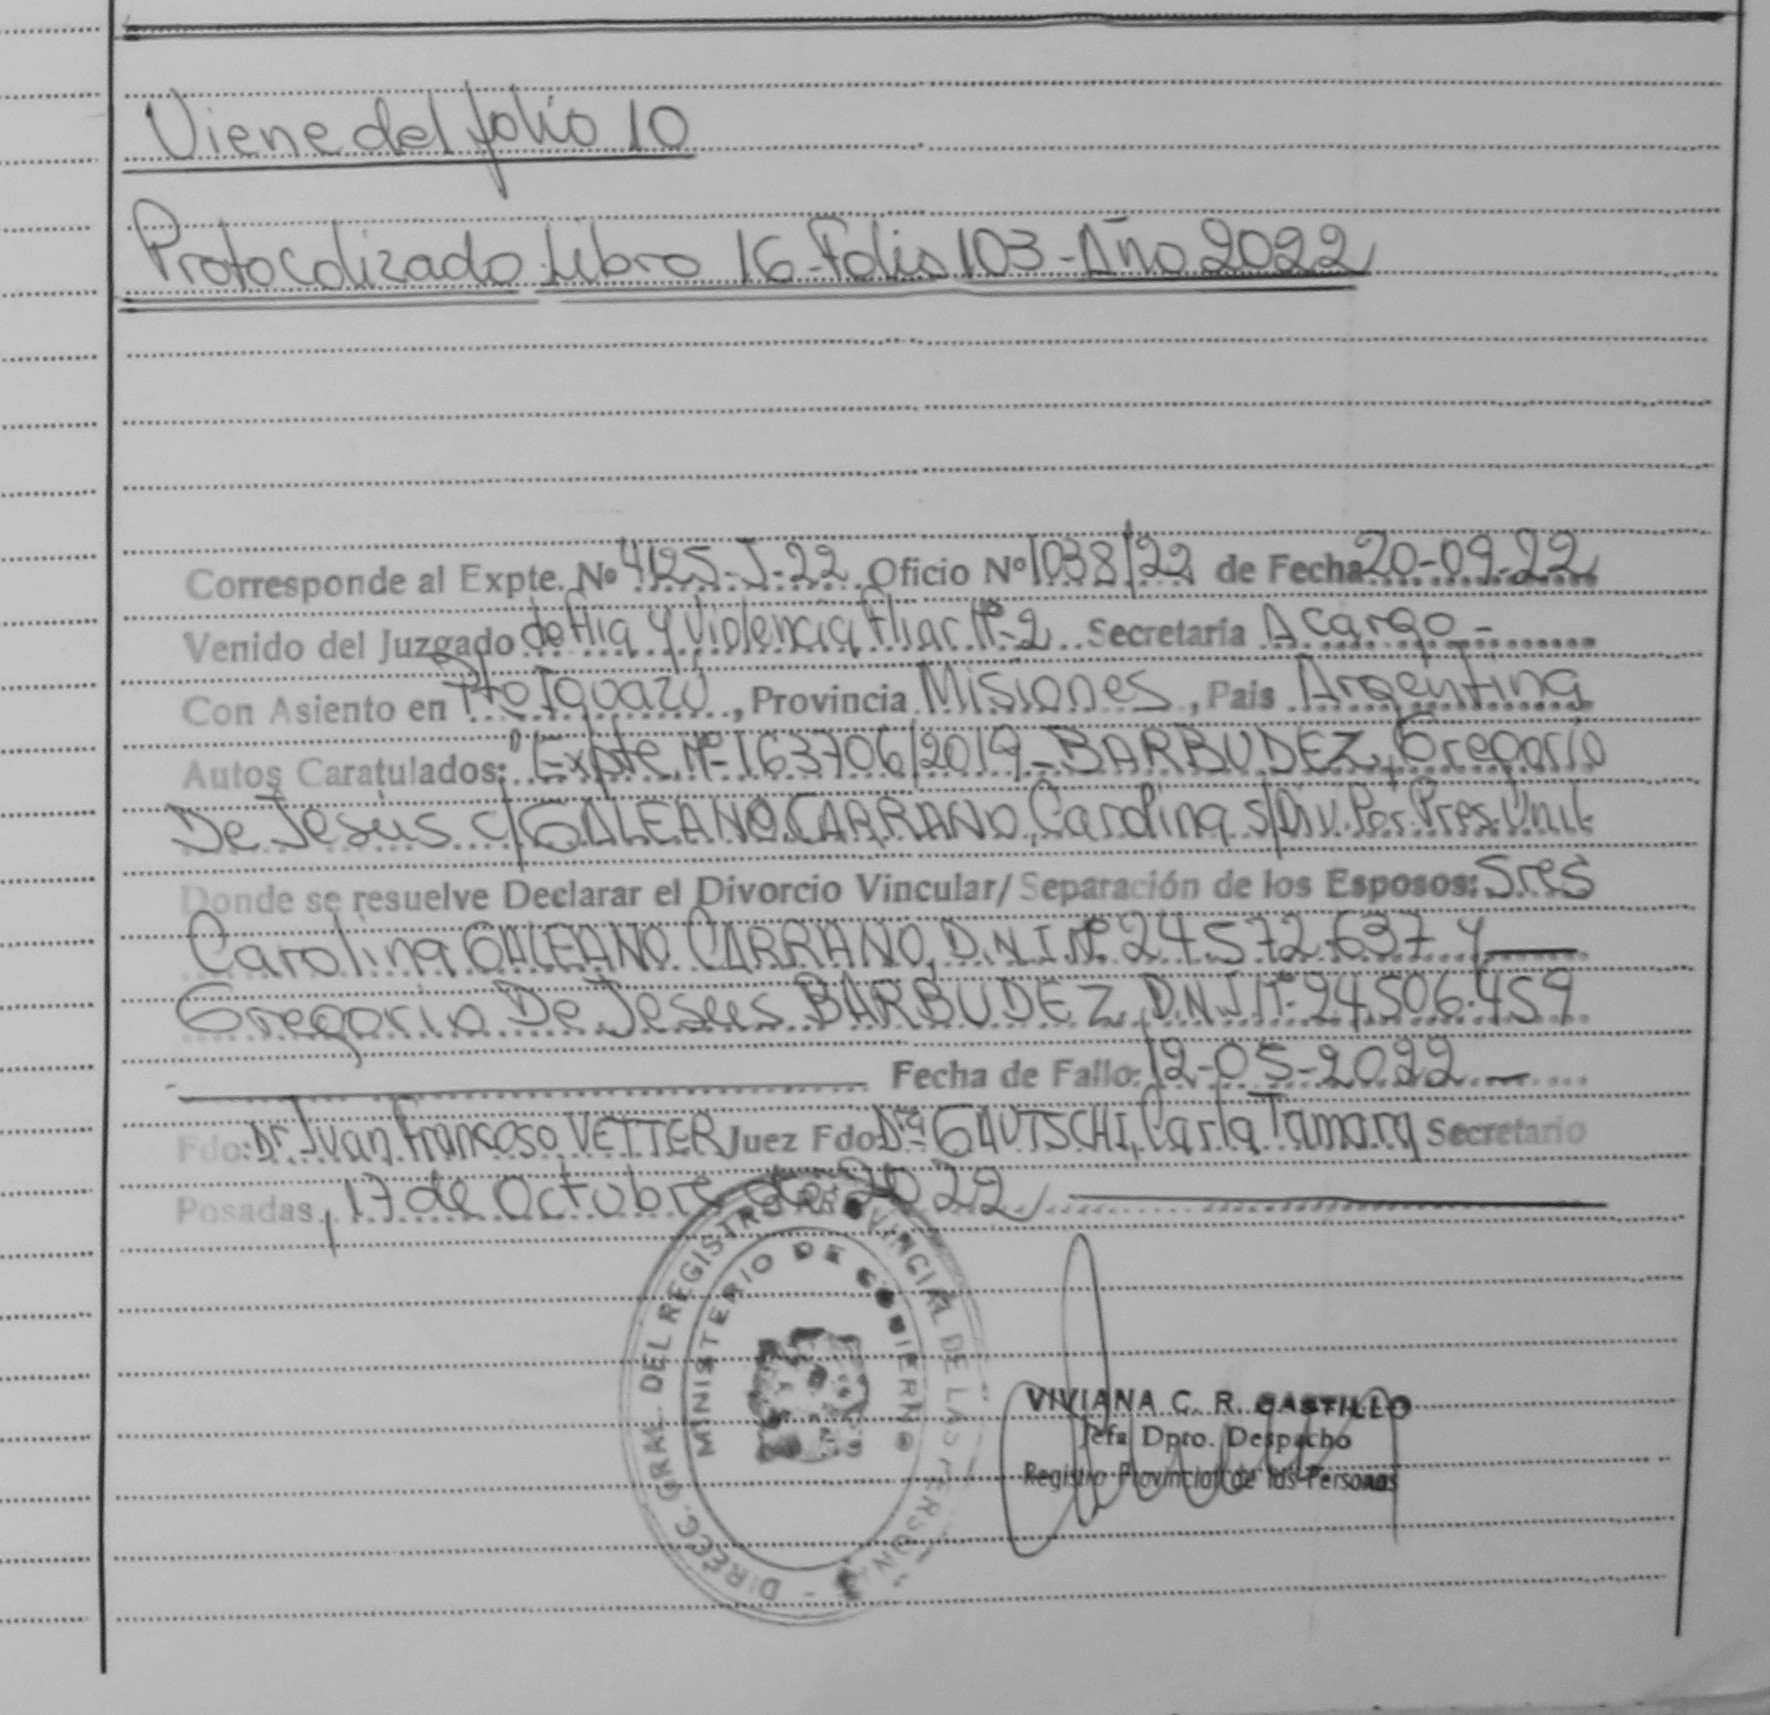 Viene del folio 10
Protocolizado Libro 16-Folio 103-Año 2022
Corresponde al Expte. Nº 4125-J-22 Oficio Nº 1038/22 de Fecha 20-09-22
Venido del Juzgado de Flia y Violencia Fliar Nº-2 Secretaría A cargo-
Con Asiento en Pto Iguazú, Provincia Misiones, Pais Argentina
Autos Caratulados: "Expte Nº-163706/2019-BARBUDEZ, Gregorio
De Jesus c/GALEANO CARRANO, Carolina s/Div. Por Pres. Unil
Donde se resuelve Declarar el Divorcio Vincular/Separación de los Esposos: Sres
Carolina GALEANO CARRANO, D.N.I Nº 24.572.637 y
Gregorio De Jesus BARBUDEZ, D.N.I Nº-24.506.459
Fecha de Fallo: 12-05-2022
Fdo: Dr. Juan Francoso VETTER Juez Fdo: Drª GAUTSCHI, Carla Tamara Secretario
Posadas, 17 de Octubre de 2022
DIRECC. GRAL. DEL REGISTRO PROVINCIAL DE LAS PERSONAS
MINISTERIO DE GOBIERNO
VIVIANA C. R. CASTILLO
Jefa Dpto. Despacho
Registro Provincial de las Personas